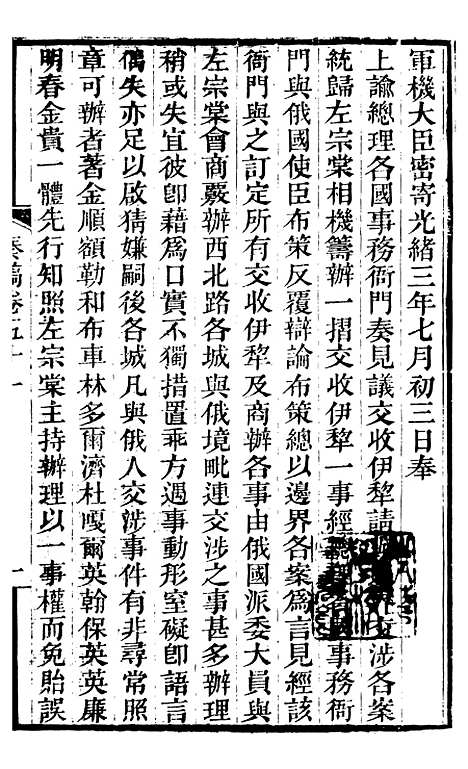 軍機大臣密寄光緒三年七月初三日奉
上諭總理各國事務衙門奏見議交收伊犂請涉各案
統歸左宗棠相機籌辦一摺交收伊犂一事經事務衙
門與俄國使臣布策反覆辯論布策總以邊界各案爲言見經該
衙門與之訂定所有交收伊犂及商辦各事由俄國派委大員與
左宗棠會商覈辦西北路各城與俄境毗連交涉之事甚多辦理
稍或失宜彼卽藉爲口實不獨措置乖方遇事動形窒礙卽語言
偶失亦足以啟猜嫌嗣後各城凡與俄人交涉事件有非尋常照
章可辦者著金順額勒和布車林多爾濟杜嘎爾英翰保英英廉
明春金貴一體先行知照左宗棠主持辦理以一事權而免貽誤
奏稿卷五十一